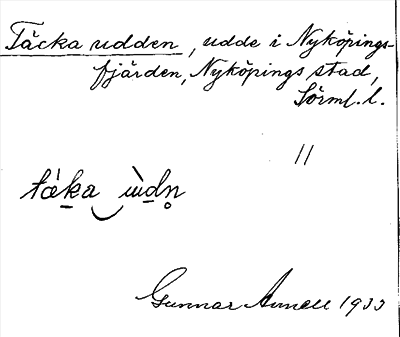 Täcka udden, udde i Nyköpings-
fjärden, Nyköpings stad,
Sörml. l.
//
tæ̀ka ùdn̥
Gunnar 1933